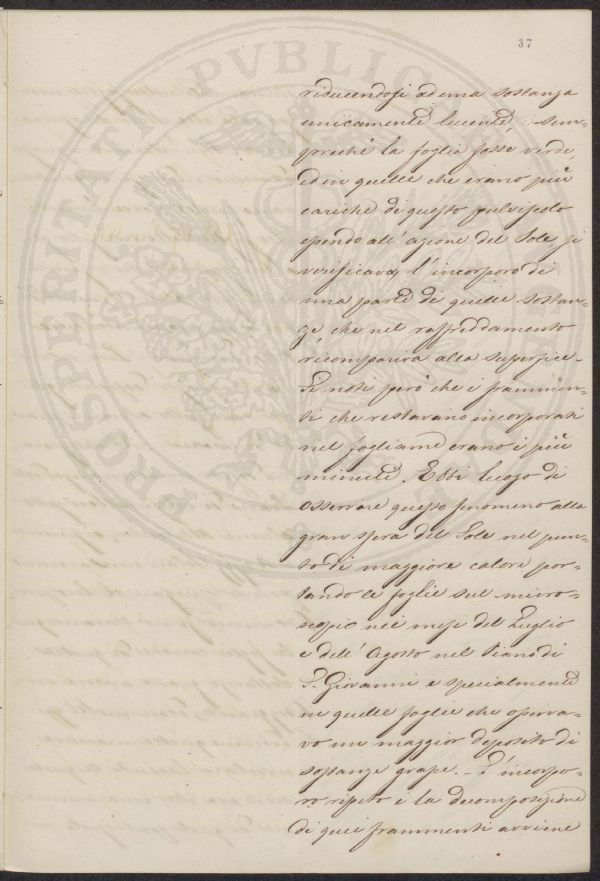 37
riducendosi ad una sostanza
unicamente lucente, sem-
prechè la foglia fosse verde,
ed in quelle che erano più
cariche di questo pulviscolo
essendo all'azione del Sole si
verificava, l'incorporo di
una parte di quelle sostan-
ze che nel raffreddamento
ricompariva alla superficie.
Si noti però che i frammen-
ti che restavano incorporati
nel fogliame erano i più
minuti. Ebbi luogo di
osservare questo fenomeno alla
gran spera del Sole nel pun-
to di maggiore calore por-
tando le foglie sul micro-
scopio nei mesi del Luglio
e dell'Agosto nel Piano di
S. Giovanni e specialmente
in quelle foglie che osserva-
vo un maggior deposito di
sostanze grasse. - L'incorpo-
ro, ripeto è la decomposizione
di quei frammenti avviene
PROSPERITATI PVBLICAE